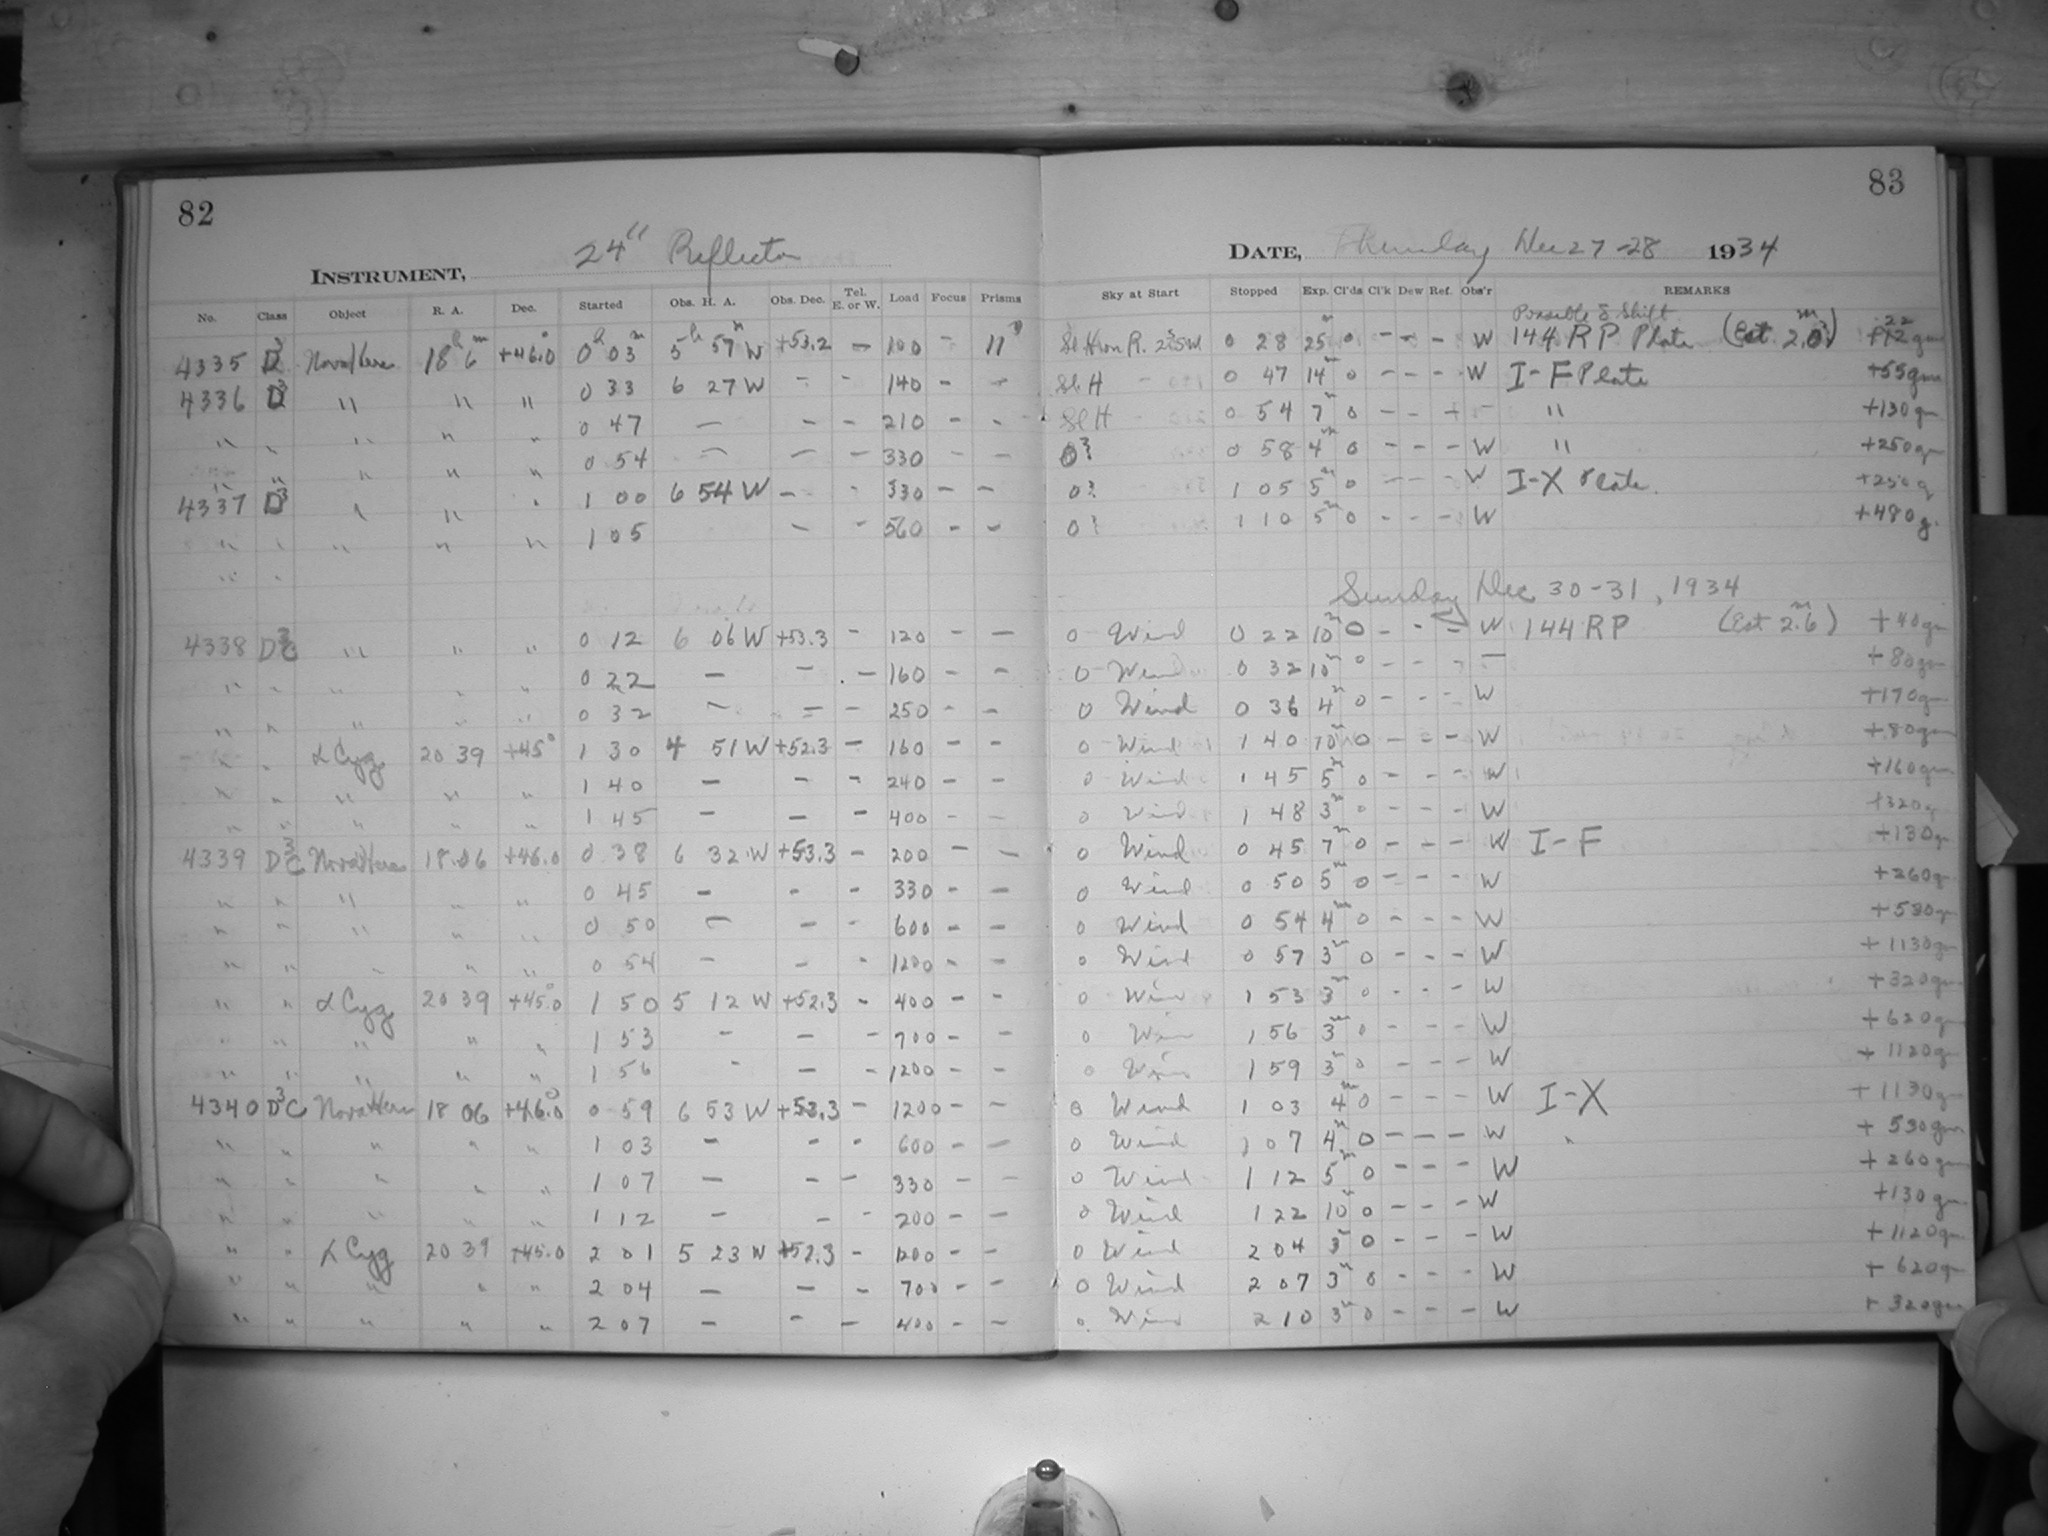 82
83
INSTRUMENT, 24" Reflector
DATE, Thursday Dec 27-28 1934
No. Class Object R. A. Dec. Started Obs. H. A. Obs. Dec. Tel. E. or W. Load Focus Prisms Sky at Start Stopped Exp. Cl'ds Cl'k Dew Ref. Obs'r REMARKS
Possible δ Shift
4335 Nova Herc 18h 6m +46.0° 0h 03m 5h 57m W +53.2 – 100 – 11 0 28 25m 0 – – – W 144 RP Plate (Est. 2.0m)
4336 " " " 0 33 6 27 W – – 140 – – Sl H 0 47 14m 0 – – – W I-F Plate +55 gm
" " " " " 0 47 – – – 210 – – Sl H 0 54 7m 0 – – " +130 gm
" " " " " 0 54 – – – 330 – – 0? 0 58 4m 0 – – – W " +250 gm
4337 D3 " " " 1 00 6 54 W – – 330 – – 0? 1 05 5m 0 – – – W I-X Plate. +250 g
" " " " " 1 05 – – 560 – – 0? 1 10 5m 0 – – – W +480 g.
Sunday Dec 30-31, 1934
4338 " " " 0 12 6 06 W +53.3 – 120 – – 0 Wind 0 22 10m 0 – – – W 144 RP (Est 2.6m) +40 gm
" " " " " 0 22 – – – 160 – – 0 Wind 0 32 10m 0 – – – – +80 gm
" " " " " 0 32 – – – 250 – – 0 Wind 0 36 4m 0 – – – W +170 gm
" " α Cyg 20 39 +45° 1 30 4 51 W +52.3 – 160 – – 0 Wind 1 40 10m 0 – – – W +80 gm
" " " " " 1 40 – – – 240 – – 0 Wind 1 45 5m 0 – – – W +160 gm
" " " " " 1 45 – – – 400 – – 0 Wind 1 48 3m 0 – – – W +320 g
4339 D3C Nova Herc 18 06 +46.0 0 38 6 32 W +53.3 – 200 – – 0 Wind 0 45 7m 0 – – – W I-F +130 g
" " " " " 0 45 – – – 330 – – 0 Wind 0 50 5m 0 – – – W +260 g
" " " " " 0 50 – – – 600 – – 0 Wind 0 54 4m 0 – – – W +530 g
" " " " " 0 54 – – – 1200 – – 0 Wind 0 57 3m 0 – – – W +1130 gm
" " α Cyg 20 39 +45.0 1 50 5 12 W +52.3 – 400 – – 0 Win 1 53 3m 0 – – – W +320 gm
" " " " " 1 53 – – – 700 – – 0 Win 1 56 3m 0 – – – W +620 gm
" " " " " 1 56 – – – 1200 – – 0 Win 1 59 3m 0 – – – W +1120 gm
4340 D3C Nova Herc 18 06 +46.0 0 59 6 53 W +53.3 – 1200 – – 0 Wind 1 03 4m 0 – – – W I-X +1130 gm
" " " " " 1 03 – – – 600 – – 0 Wind 1 07 4m 0 – – – W " +530 gm
" " " " " 1 07 – – – 330 – – 0 Wind 1 12 5m 0 – – – W +260 gm
" " " " " 1 12 – – – 200 – – 0 Wind 1 22 10m 0 – – – W +130 gm
" " α Cyg 20 39 +45.0 2 01 5 23 W +52.3 – 1200 – – 0 Wind 2 04 3m 0 – – – W +1120 gm
" " " " " 2 04 – – – 700 – – 0 Wind 2 07 3m 0 – – – W +620 gm
" " " " " 2 07 – – – 400 – – 0 Wind 2 10 3m 0 – – – W +320 gm